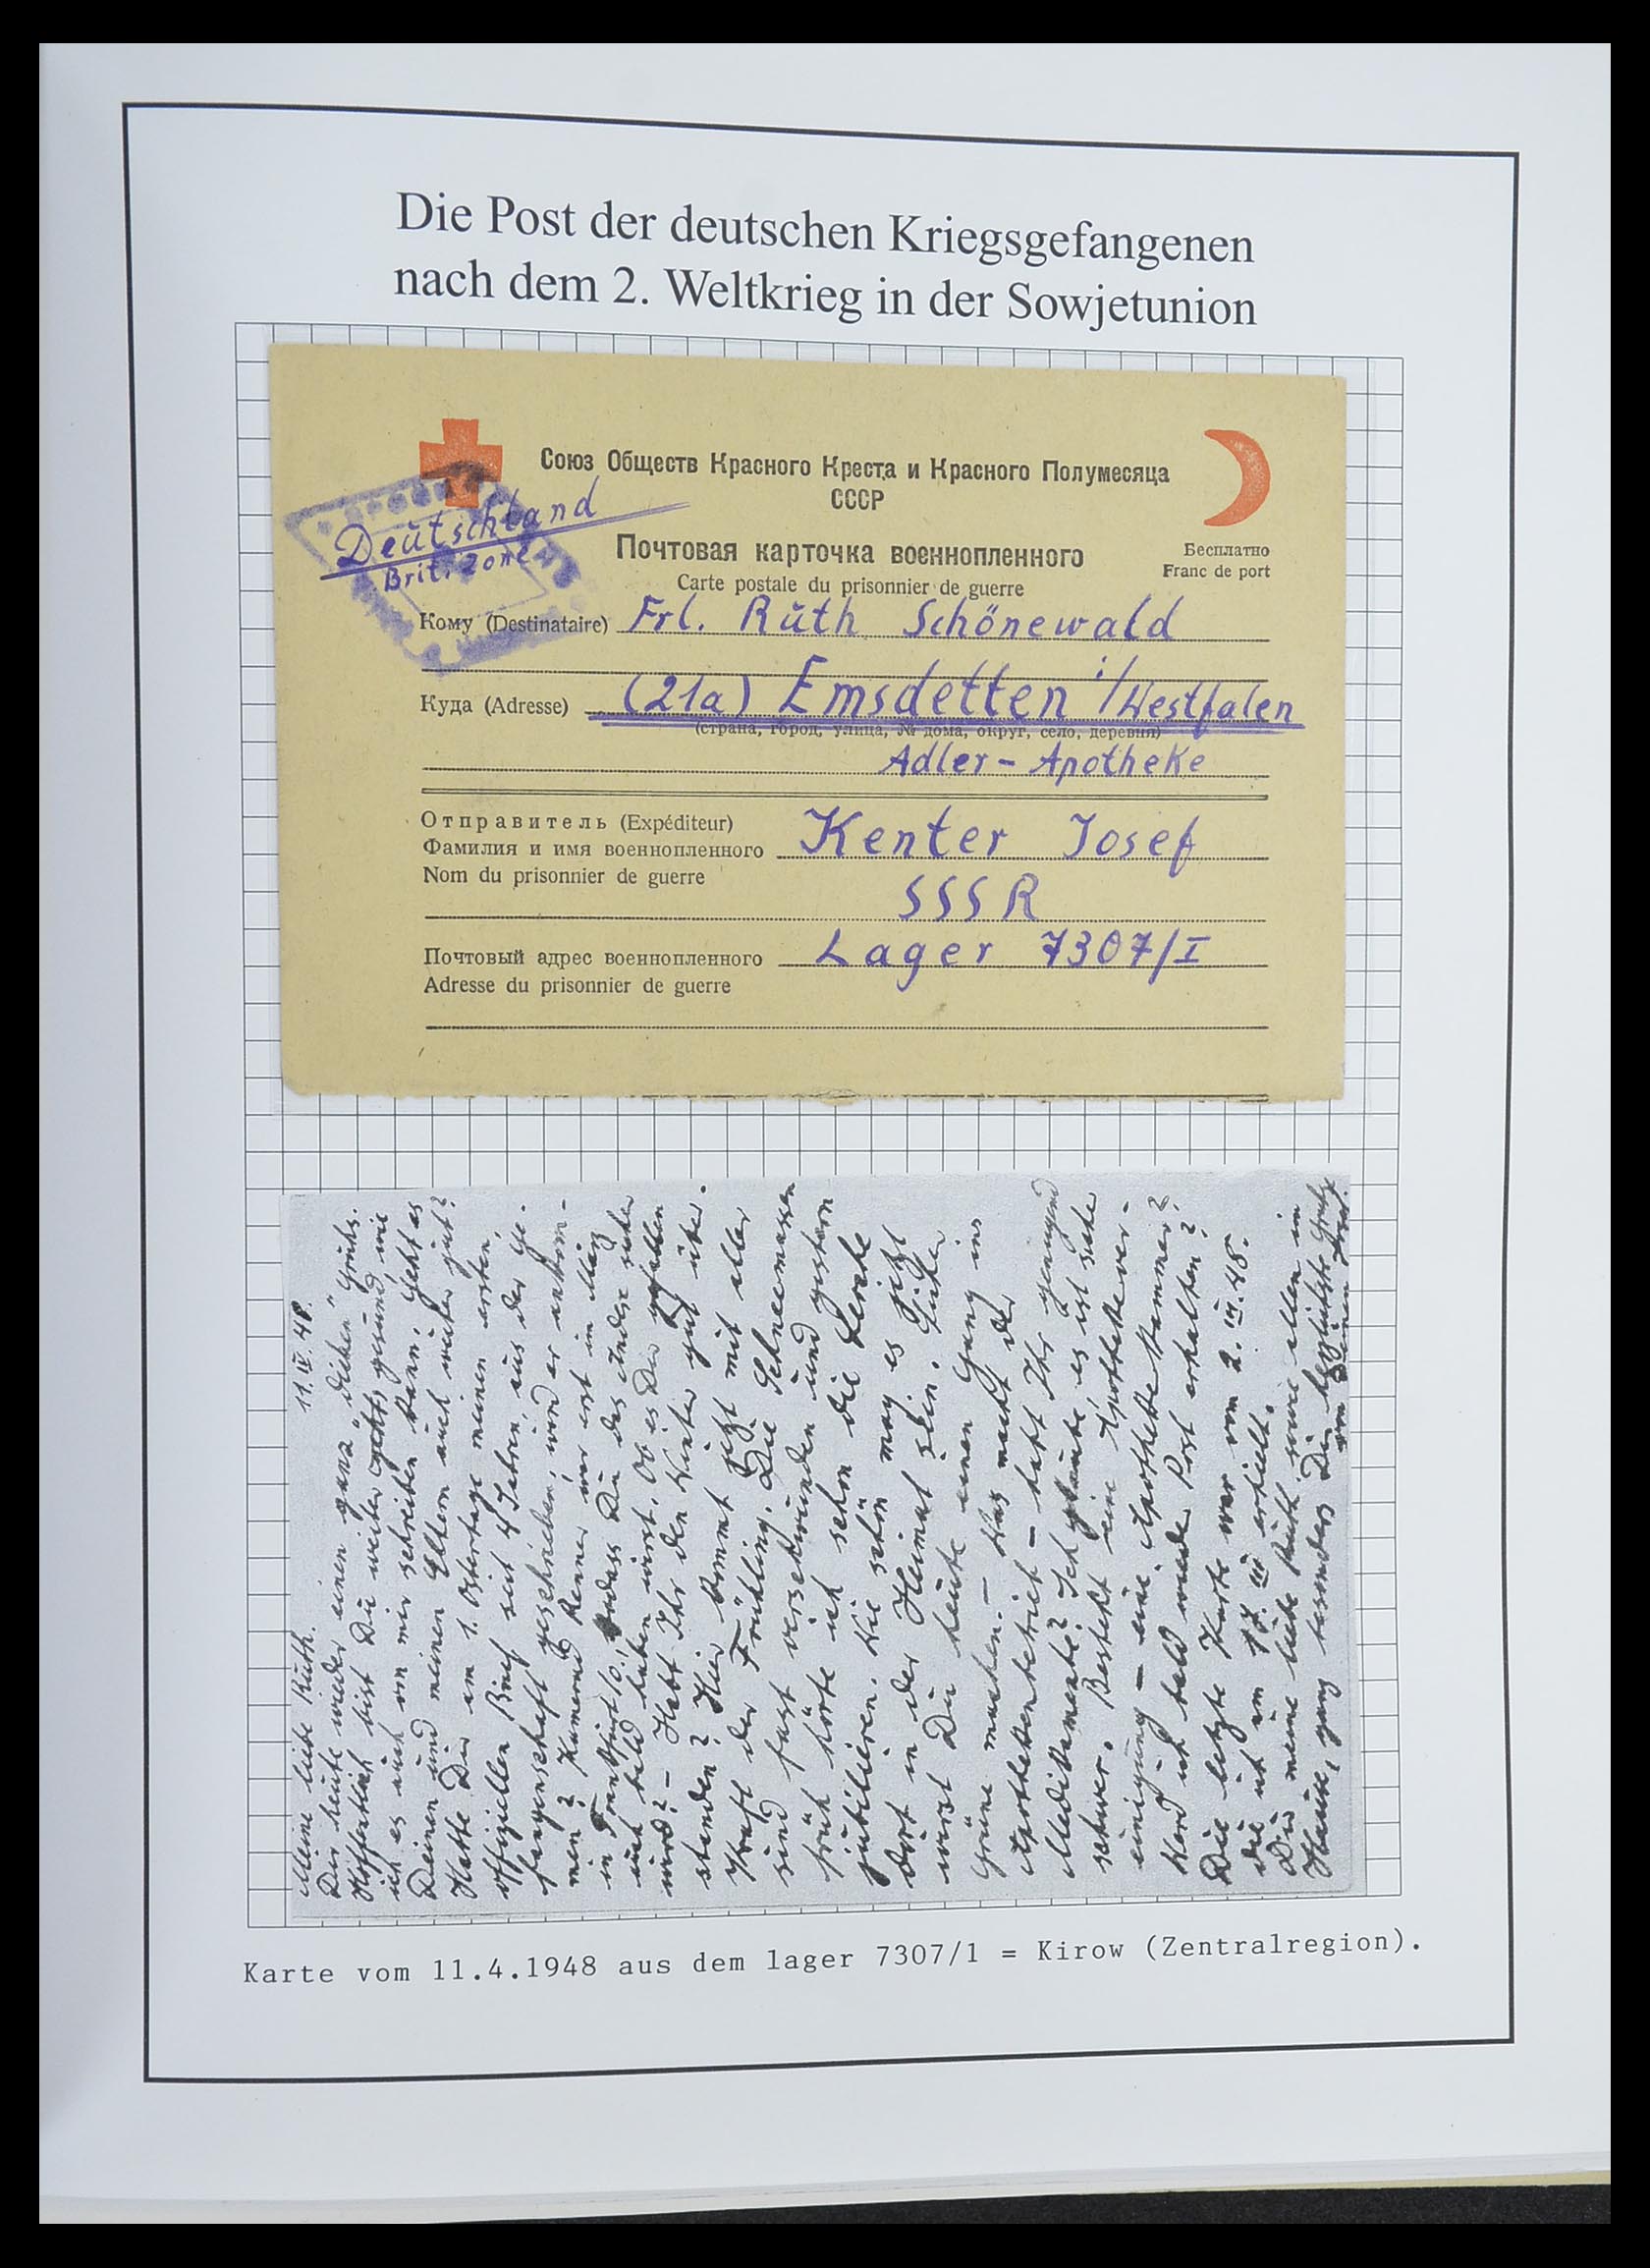 Die Post der deutschen Kriegsgefangenen
nach dem 2. Weltkrieg in der Sowjetunion
Союз Обществ Красного Креста и Красного Полумесяца
СССР
Deutschland
Brit. Zone
Почтовая карточка военнопленного
Carte postale du prisonnier de guerre
Бесплатно
Franc de port
Кому (Destinataire) Frl. Ruth Schönewald
Куда (Adresse) (21a) Emsdetten i/Westfalen
(страна, город, улица, № дома, округ, село, деревня)
Adler-Apotheke
Отправитель (Expéditeur)
Фамилия и имя военнопленного Kenter Josef
Nom du prisonnier de guerre
SSSR
Почтовый адрес военнопленного Lager 7307/I
Adresse du prisonnier de guerre
11.IV.48.
Meine liebe Ruth.
Dir heute wieder einen ganz "dicken" Gruß.
Hoffentlich bist Du weiter gesund, wie
ich es auch von mir schreiben kann. Geht es
Deinen und meinen Eltern auch weiter gut?
Hatte Dir am 1. Ostertage meinen ersten,
offiziellen Brief seit 4 Jahren, aus der Ge-
fangenschaft geschrieben, wird er ankom-
men? Kamerad Renner war erst im März
in sodass Du das andere sicher
auch bald haben wirst. Ob es Dir gefallen
wird? - Habt Ihr den Winter gut über-
standen? Hier kommt jetzt mit aller
Kraft der Frühling. Die Schneemassen
sind fast verschwunden und gestern
früh hörte ich schon die Lerche
jubilieren. Wie schön mag es jetzt
dort in der Heimat sein. Sicher
wirst Du heute einen Gang ins
Grüne machen. - Was macht der
Apothekenbetrieb - habt Ihr genügend
Medikamente? Ich glaube, es ist sicher
schwer. Besteht eine Apothekerver-
einigung - eine Apothekerkammer?
Werd ich bald wieder Post erhalten?
Die letzte Karte war vom 2.III.48.
die ich am 17.III erhielt.
Dir meine liebe Ruth, sowie allen im
Hause, ganz besonders Dir herzlichste Grüße
von Deinem Josef.
Karte vom 11.4.1948 aus dem lager 7307/1 = Kirow (Zentralregion).